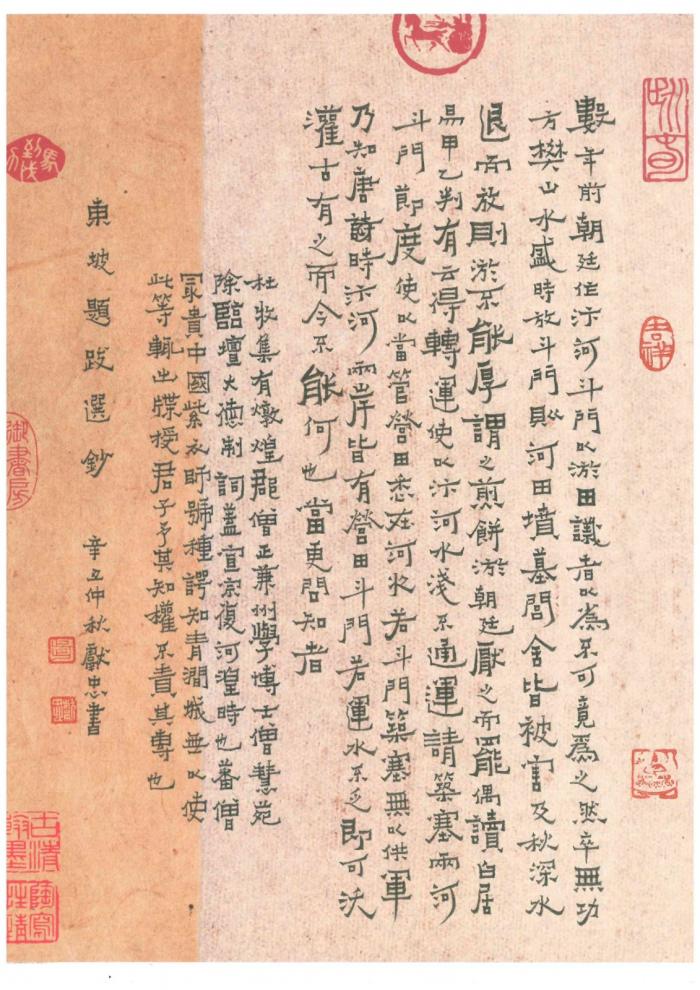 數年前朝廷作汴河斗門以淤田議者以為不可竟為之然卒無功
方樊山水盛時放斗門則河田墳墓閭舍皆被害及秋深水
退而放則淤不能厚謂之煎餅淤朝廷厭之而罷偶讀白居
易甲乙判有云得轉運使以汴河水淺不通運請築塞兩河
斗門節度使以當管營田悉在河次若斗門築塞無以供軍
乃知唐詩時汴河兩岸皆有營田斗門若運水不乏即可沃
灌古有之而今不能何也當更問知者
杜牧集有燉煌郡僧正兼州學博士僧慧苑
除臨壇大德制詞蓋宣宗復河湟時也蕃僧
最貴中國紫衣師號種諤知青澗城無以使
此等輒出牒授君子予其知權不責其專也
東坡題跋選鈔 辛丑仲秋獻忠書
吉祥
御書房